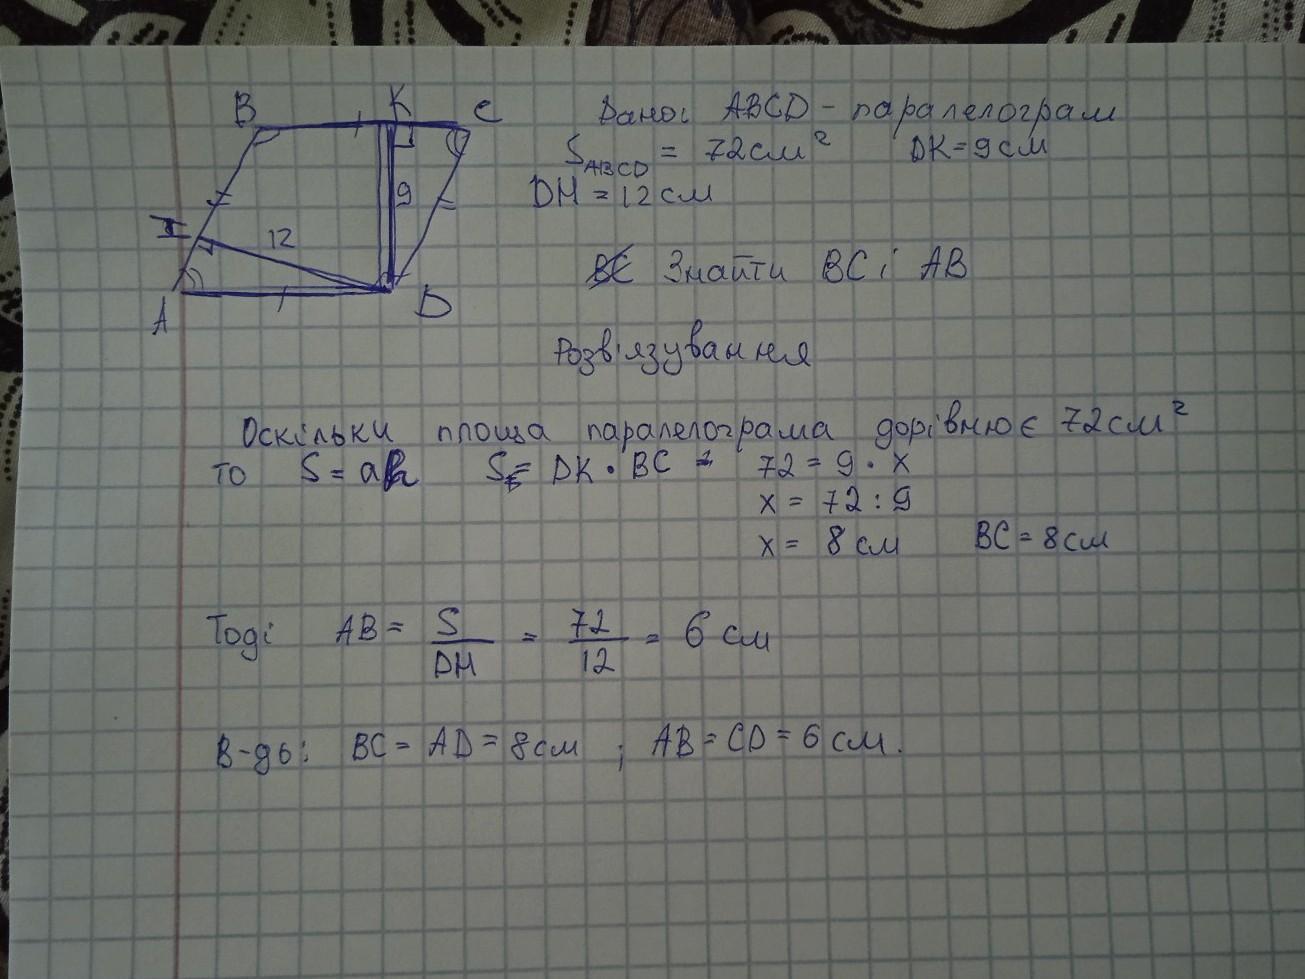 B K C
9
12
A D
Дано: ABCD - паралелограм
S ABCD = 72см² DK = 9см
DH = 12см
Знайти BC і AB
Розв'язування
Оскільки площа паралелограма дорівнює 72см²
то S = ah S = DK · BC = 72 = 9 · x
x = 72 : 9
x = 8 см BC = 8см
Тоді AB = S/DH = 72/12 = 6 см
В-дь: BC = AD = 8см ; AB = CD = 6 см.